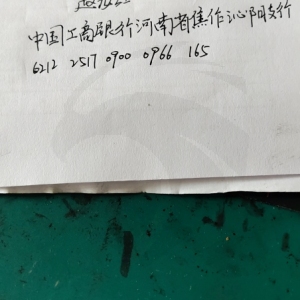 中国工商银行河南省焦作沁阳支行
6212 2517 0900 0966 165